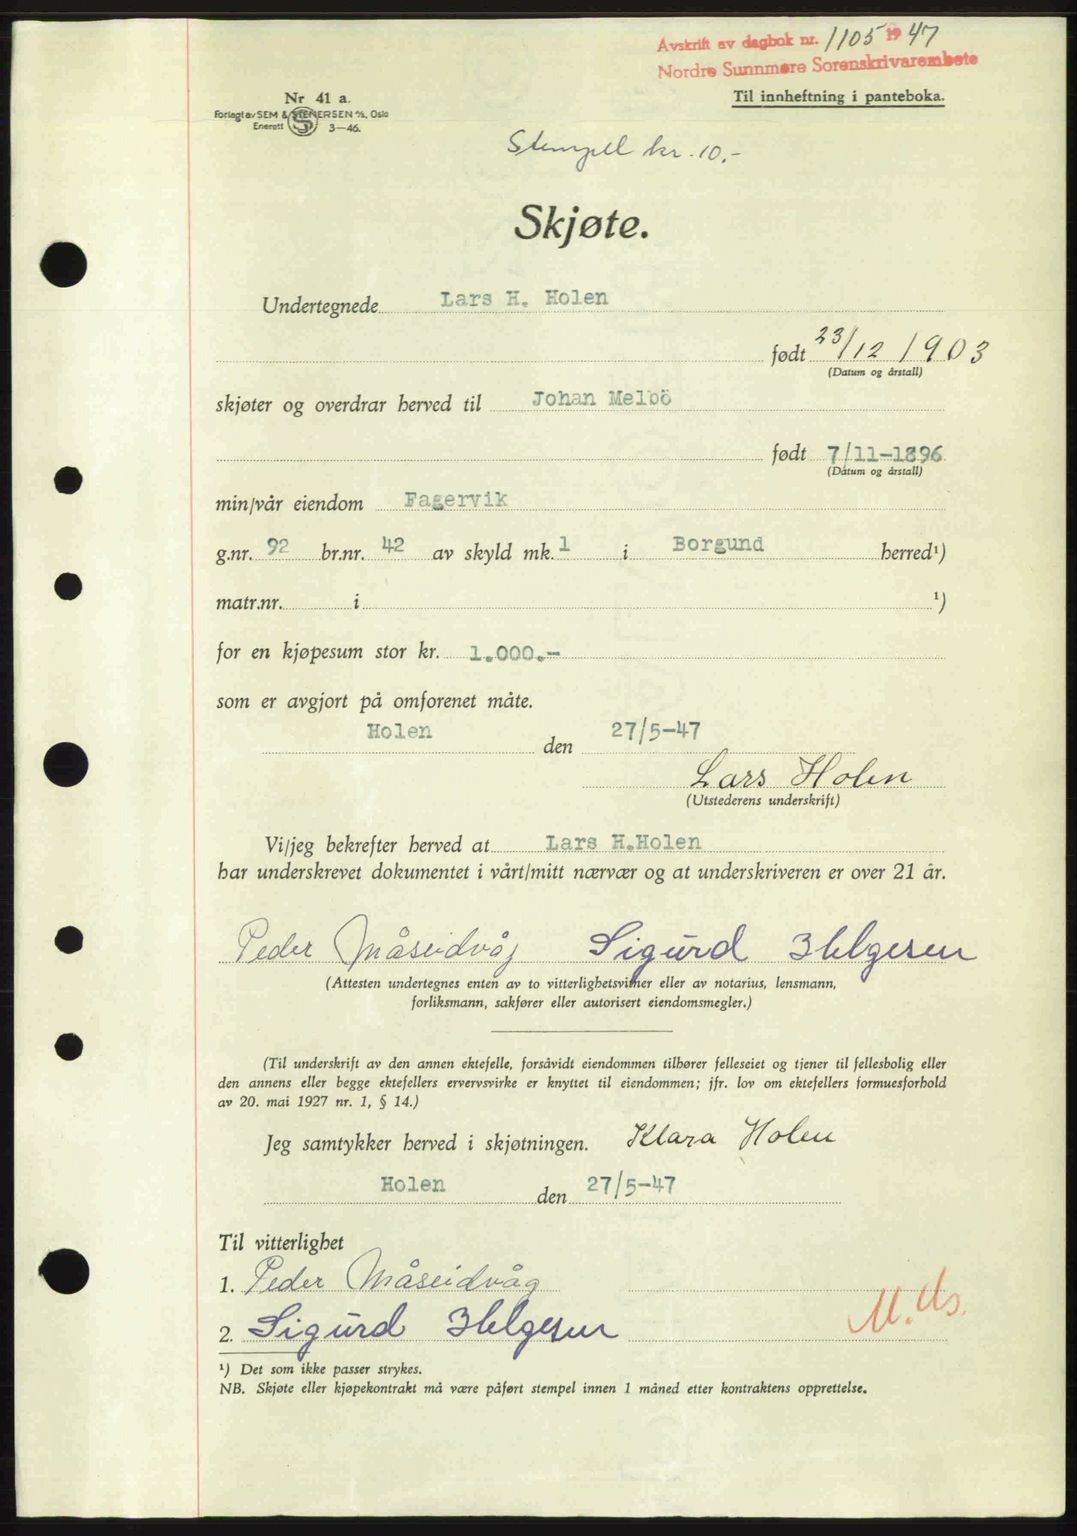 Avskrift av dagbok nr. 1105 1947
Nordre Sunnmøre Sorenskrivarembete
Til innheftning i panteboka.
Nr 41 a.
Forlagt av SEM & STENERSEN A/S, Oslo
Enerett 3–46.
Stempel kr. 10.-
Skjøte.
Undertegnede Lars H. Holen
født 23/12 1903
(Datum og årstall)
skjøter og overdrar herved til Johan Melbö
født 7/11-1896
(Datum og årstall)
min/vår eiendom Fagervik
g.nr. 92 br.nr. 42 av skyld mk. 1 i Borgund herred¹)
matr.nr. i ¹)
for en kjøpesum stor kr. 1.000.-
som er avgjort på omforenet måte.
Holen den 27/5-47
Lars Holen
(Utstederens underskrift)
Vi/jeg bekrefter herved at Lars H.Holen
har underskrevet dokumentet i vårt/mitt nærvær og at underskriveren er over 21 år.
Peder Måseidvåg Sigurd Helgesen
(Attesten undertegnes enten av to vitterlighetsvitner eller av notarius, lensmann,
forliksmann, sakfører eller autorisert eiendomsmegler.)
(Til underskrift av den annen ektefelle, forsåvidt eiendommen tilhører felleseiet og tjener til fellesbolig eller
den annens eller begge ektefellers ervervsvirke er knyttet til eiendommen; jfr. lov om ektefellers formuesforhold
av 20. mai 1927 nr. 1, § 14.)
Jeg samtykker herved i skjøtningen. Klara Holen
Holen den 27/5-47
Til vitterlighet
1. Peder Måseidvåg
2. Sigurd Helgesen
¹) Det som ikke passer strykes.
NB. Skjøte eller kjøpekontrakt må være påført stempel innen 1 måned etter kontraktens opprettelse.